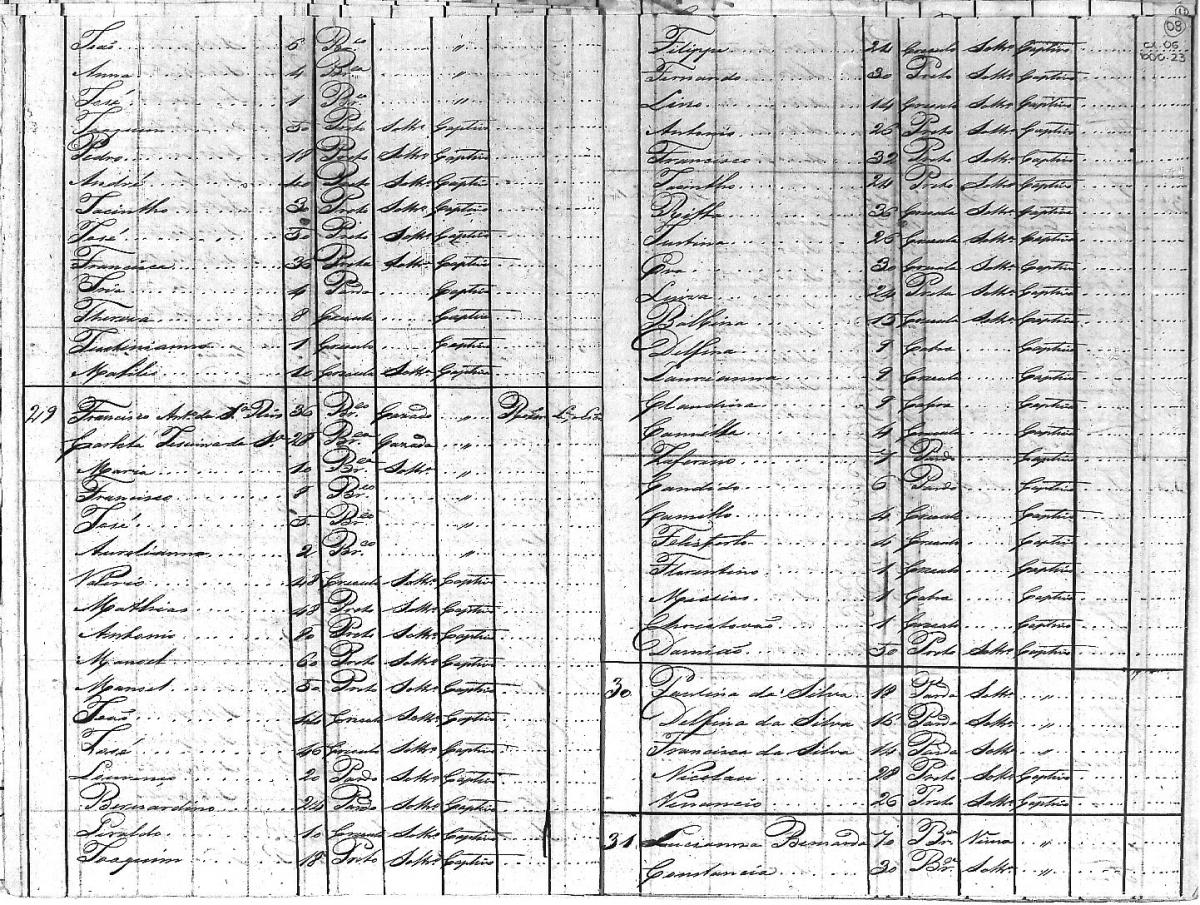 João 6 Br.co "
Anna 4 Br.ca "
José 1 Br.co "
50 Preto Soltr.o Captivo
Pedro 18 Preto Soltr.o Captivo
André 40 Preto Soltr.o Captivo
Jacintho 30 Preto Soltr.o Captivo
José 50 Preto Soltr.o Captivo
Francisca 36 Preta Soltr.a Captiva
4 Pardo Captivo
Thereza 8 Crioula Captiva
1 Crioulo Captivo
10 Crioulo Soltr.o Captivo
29 Francisco Ant.o da S.a Reis 36 Br.co Cazado "
28 Br.ca Cazada "
Maria 10 Br.ca Soltr.a "
Francisco 8 Br.co "
José 5 Br.co "
Aurelianno 2 Br.co "
Valerio 48 Crioulo Soltr.o Captivo
Mathias 48 Preto Soltr.o Captivo
Antonio Preto Soltr.o Captivo
Manoel 60 Preto Soltr.o Captivo
Manoel 50 Preto Soltr.o Captivo
João Crioulo Soltr.o Captivo
José 46 Crioulo Soltr.o Captivo
Lourenço 20 Pardo Soltr.o Captivo
Bernardino 24 Pardo Soltr.o Captivo
10 Crioulo Soltr.o Captivo
Joaquim 18 Preto Soltr.o Captivo
08
CX. 06
DOC. 23
Filippe 24 Crioulo Soltr.o Captivo
Fernando 30 Preto Soltr.o Captivo
Lino 14 Crioulo Soltr.o Captivo
Antonio 26 Preto Soltr.o Captivo
Francisco 32 Preto Soltr.o Captivo
Jacintho 24 Preto Soltr.o Captivo
36 Crioula Soltr.a Captiva
Justina 26 Crioula Soltr.a Captiva
Eva 30 Crioula Soltr.a Captiva
Luiza 24 Preta Soltr.a Captiva
Balbina 15 Crioula Soltr.a Captiva
Delfina 9 Cabra Captiva
Laurianna 9 Crioula Captiva
Claudina 9 Cabra Captiva
Camilla 4 Crioula Captiva
Zaferino 7 Pardo Captivo
Candido 6 Pardo Captivo
Camillo 4 Crioulo Captivo
4 Crioulo Captivo
Florentino 1 Crioulo Captivo
Messias 1 Cabra Captivo
1 Crioulo Captivo
Damião 50 Preto Soltr.o Captivo
30 Paulina da Silva 18 Parda Soltr.a "
Delfina da Silva 16 Parda Soltr.a "
Francisca da Silva 14 Parda Soltr.a "
Nicolau 28 Preto Soltr.o Captivo
Venancio 26 Preto Soltr.o Captivo
31 Lucianna Bernarda 70 Br.ca "
Constancia 30 Br.ca Soltr.a "